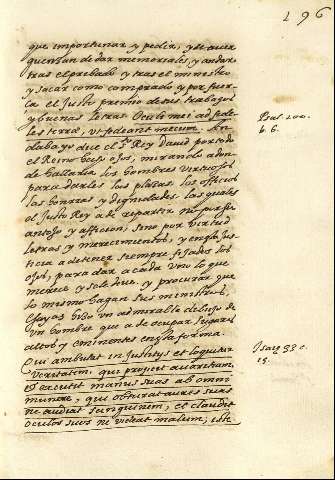 196
que importunar y pedir, y se aver
guenzan de dar memoriales, y andar
tras el prebado y tras el ministro
y sacar como comprado y por fuer
ça el justo premio de sus trabajos
y buenas letras. Oculi mei ad fide
les terræ, vt sedeant mecum. An
daba yo dice el S.to Rey David por todo
el Reino los ojos, mirando adon
de hallaria los hombres virtuosos
para darles las plaças los officios
las honrras y dignidades las quales
el justo Rey a de repartir no por su
antojo y afficion, sino por virtud
letras y merecimientos, y en la jus
ticia a de tener siempre fijados los
ojos, para dar a cada vno lo que
merece y se le deve, y procurar que
lo mismo hagan sus ministros.
Esayas hiço vn admirable dibujo de
vn hombre que a de ocupar lugares
altos y eminentes en esta forma.
Qui ambulat in justitijs et loquitur
veritatem, qui projicit avaritiam,
et excutit manus suas ab omni
munere, qui obturat aures suas
ne audiat sanguinem, et claudit
oculos suos ne videat malum; iste
Psal. 100.
b. 6.
Isaye 33 c.
15.